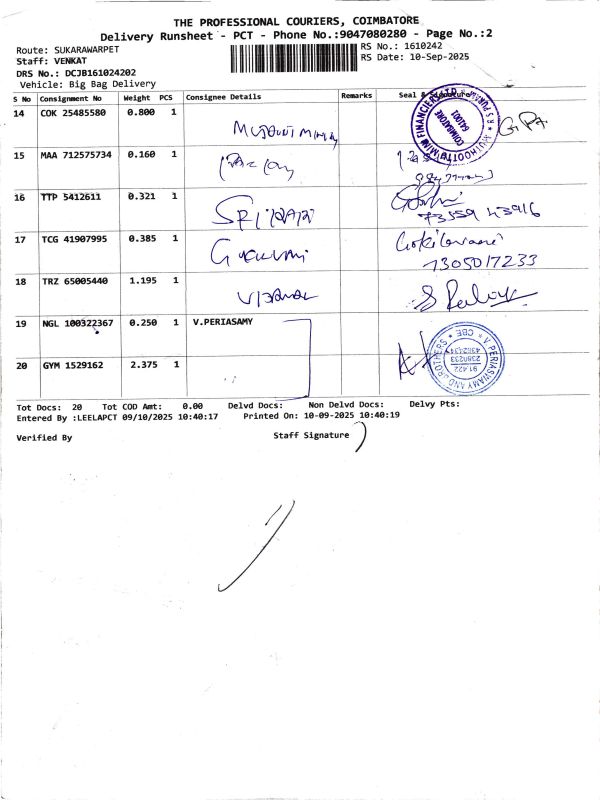 THE PROFESSIONAL COURIERS, COIMBATORE
Delivery Runsheet - PCT - Phone No.:9047080280 - Page No.:2
Route: SUKARAWARPET
RS No.: 1610242
Staff: VENKAT
RS Date: 10-Sep-2025
DRS No.: DCJB161024202
Vehicle: Big Bag Delivery
S No Consignment No Weight PCS Consignee Details Remarks Seal & Signature
14 COK 25485580 0.800 1
15 MAA 712575734 0.160 1
16 TTP 5412611 0.321 1
17 TCG 41907995 0.385 1
7305017233
18 TRZ 65005440 1.195 1
19 NGL 100322367 0.250 1 V.PERIASAMY
20 GYM 1529162 2.375 1
V. PERIASWAMY AND BROTHERS
CBE
Tot Docs: 20 Tot COD Amt: 0.00 Delvd Docs: Non Delvd Docs: Delvy Pts:
Entered By :LEELAPCT 09/10/2025 10:40:17 Printed On: 10-09-2025 10:40:19
Verified By Staff Signature